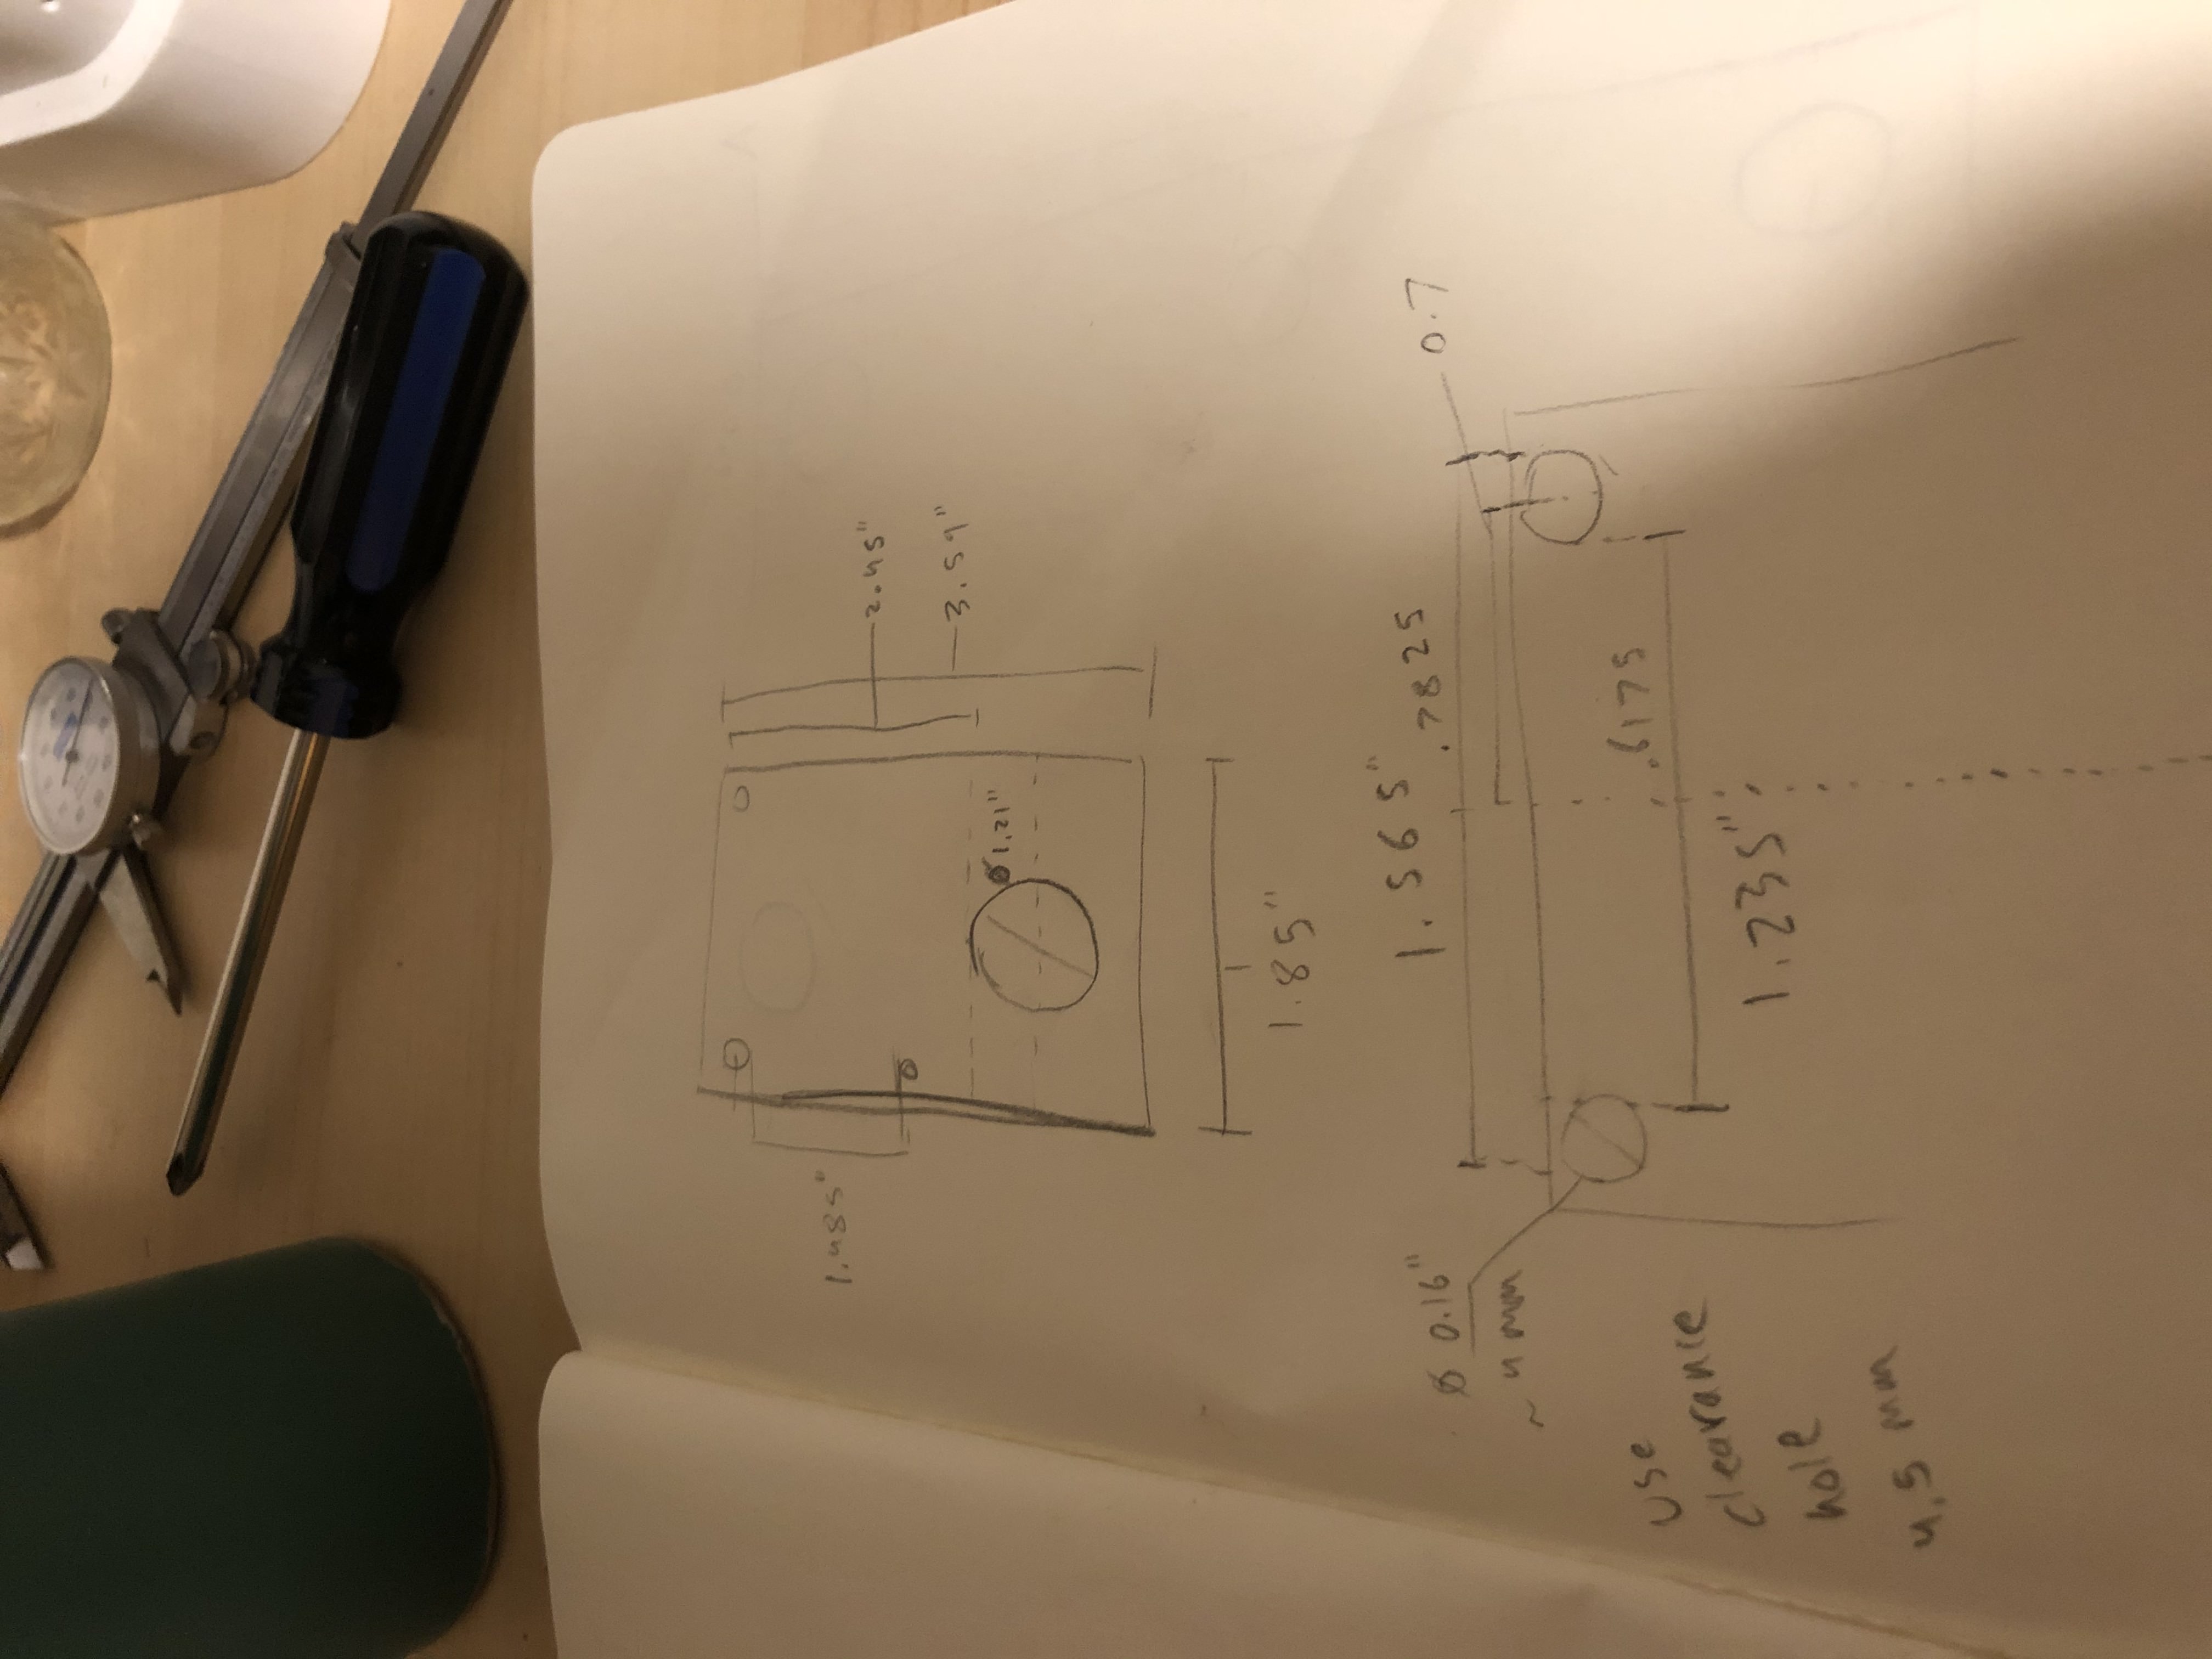 1.485"
2.45"
3.59"
Ø1.21"
1.85"
1.565"
.7825
0.7
Ø 0.16"
~ 4 mm
.6175
1.235"
use
clearance
hole
4.5 mm